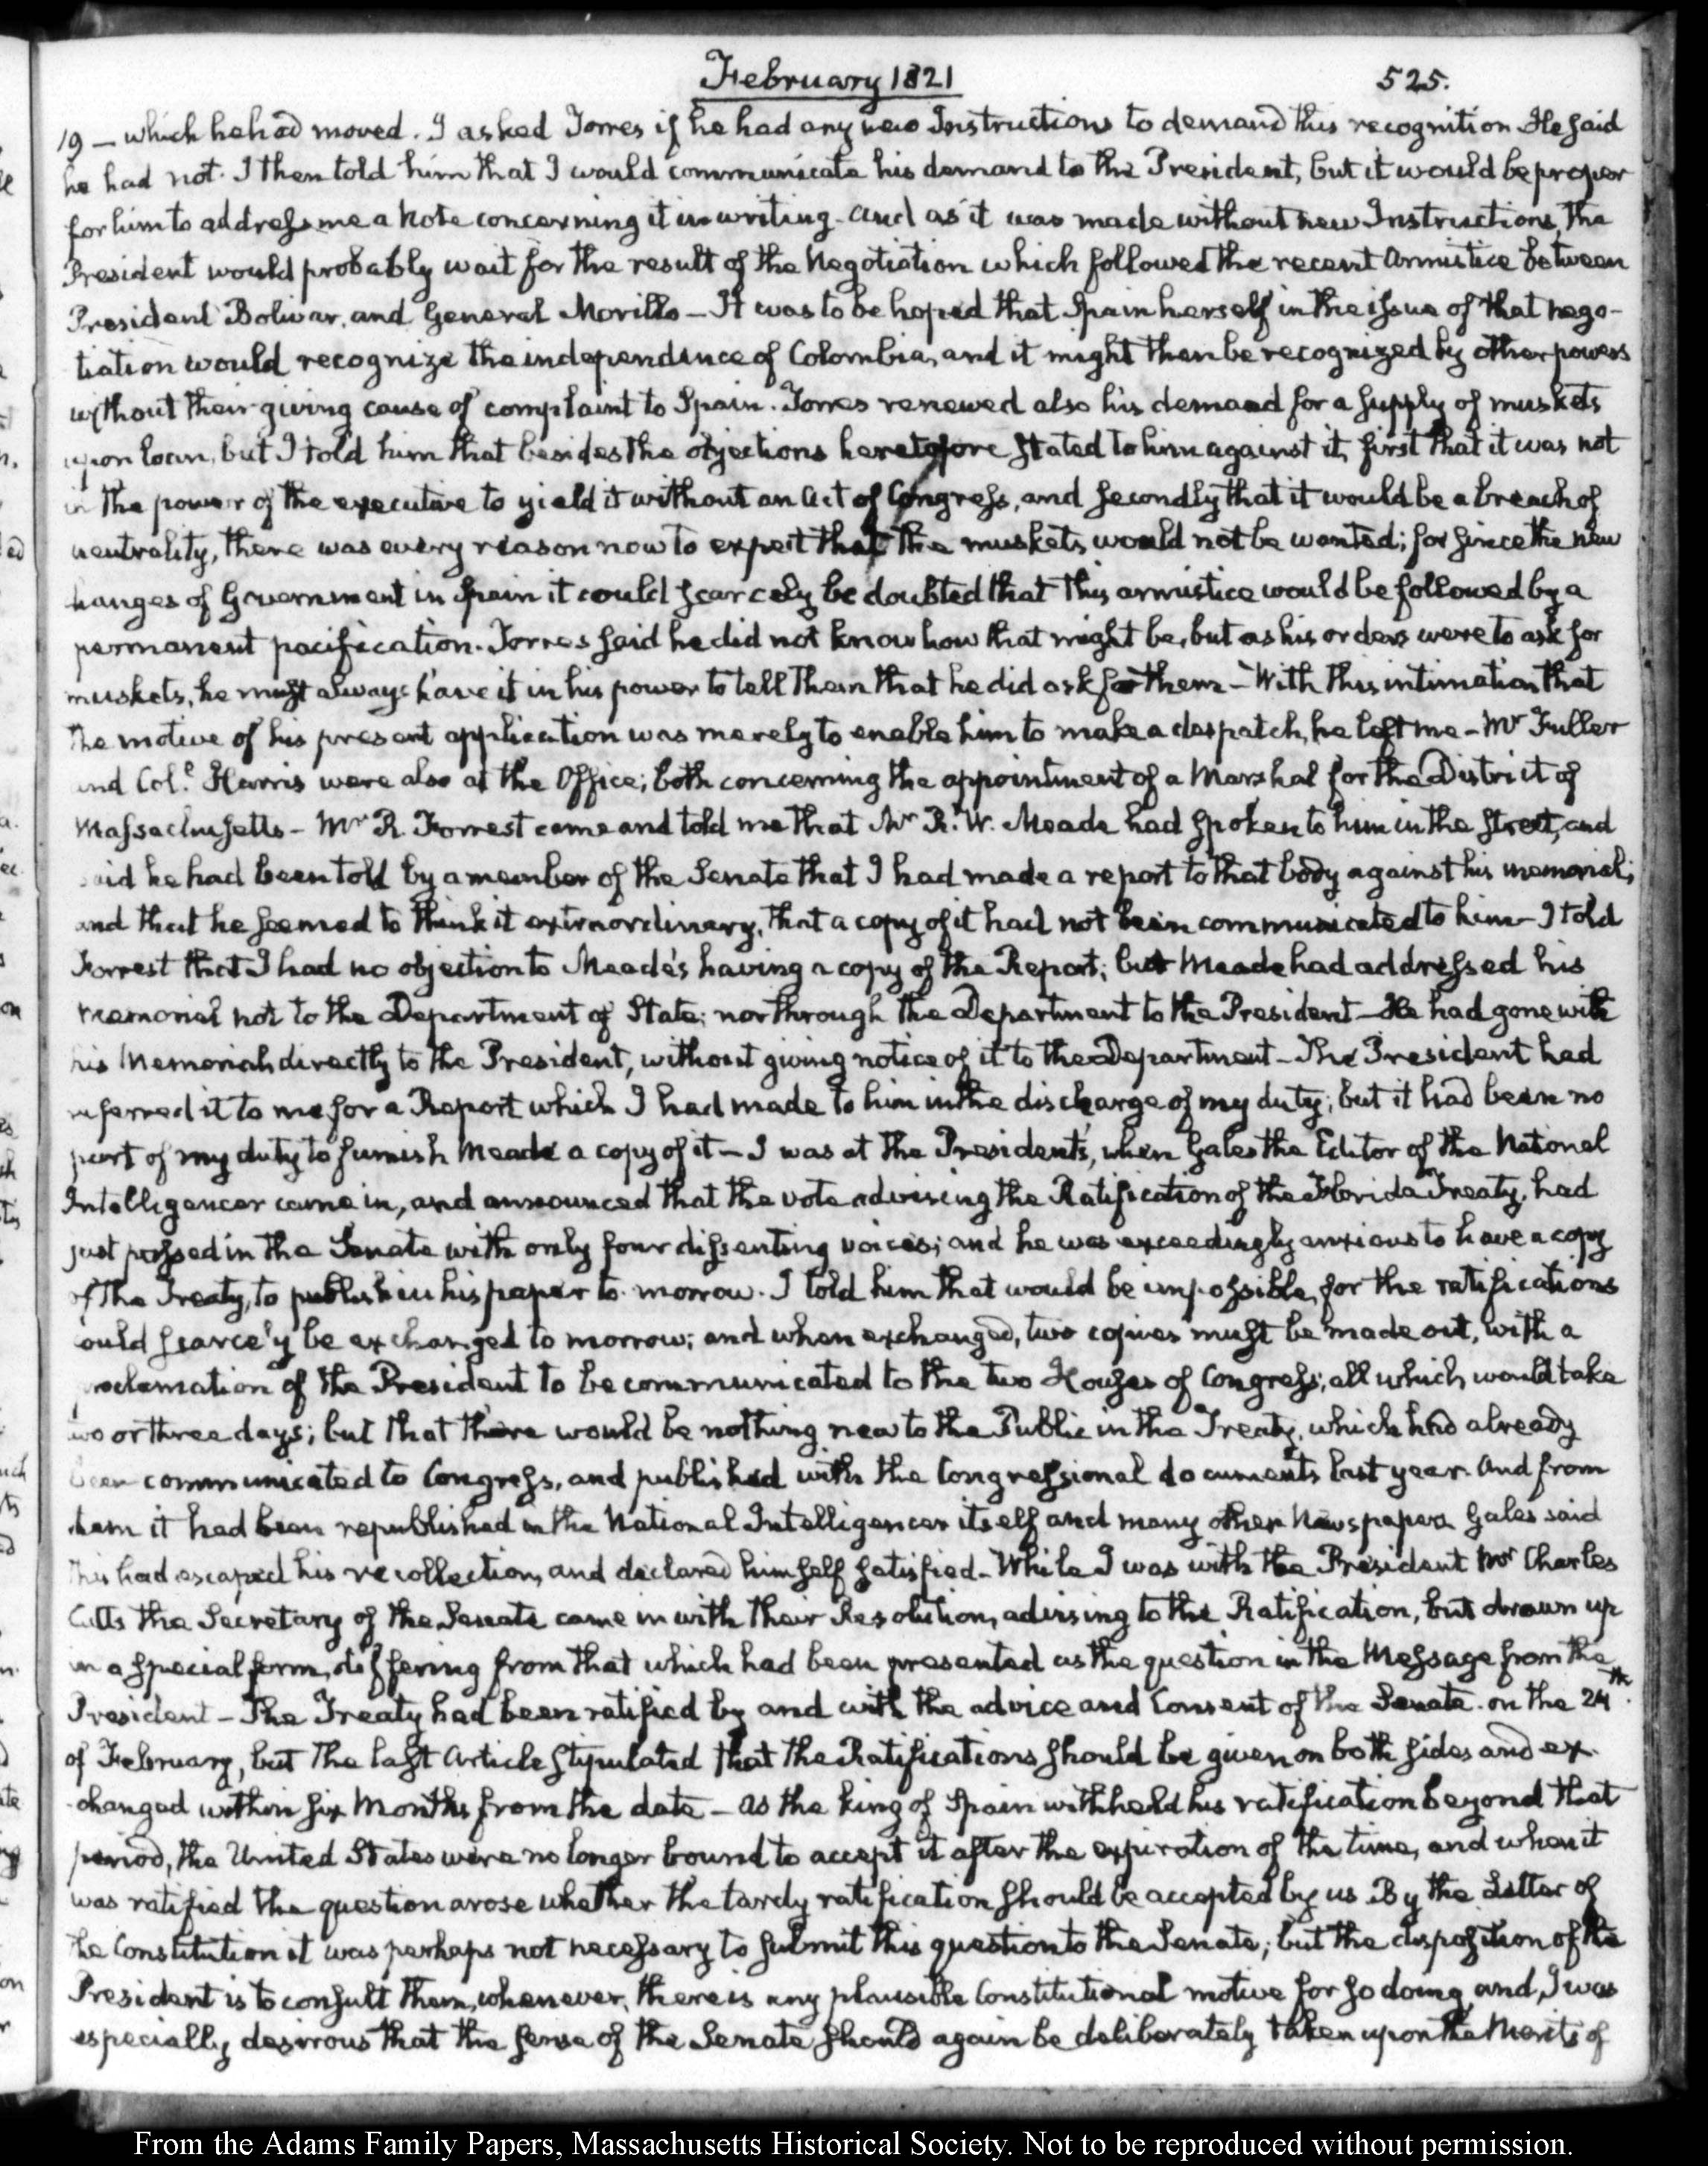 February 1821
525.
19 — which he had moved. I asked Torres if he had any new Instructions to demand this recognition He said
he had not. I then told him that I would communicate his demand to the President, but it would be proper
for him to address me a Note concerning it in writing. and as it was made without new Instructions, the
President would probably wait for the result of the Negotiation which followed the recent Armistice between
President Bolivar, and General Morillo — It was to be hoped that Spain herself in the issue of that nego-
tiation would recognize the independence of Colombia, and it might then be recognized by other powers
without their giving cause of complaint to Spain. Torres renewed also his demand for a supply of muskets
upon loan, but I told him that besides the objections heretofore stated to him against it, first that it was not
in the power of the executive to yield it without an Act of Congress, and secondly that it would be a breach of
neutrality, there was every reason now to expect that the muskets would not be wanted; for since the new
hanges of Government in Spain it could scarcely be doubted that this armistice would be followed by a
permanent pacification. Torres said he did not know how that might be, but as his orders were to ask for
muskets, he must always have it in his power to tell them that he did ask for them — With this intimation that
the motive of his present application was merely to enable him to make a despatch, he left me — Mr Fuller
and Col.l Harris were also at the Office; both concerning the appointment of a Marshal for the District of
Massachusetts — Mr R. Forrest came and told me that Mr R. W. Meade had spoken to him in the street, and
said he had been told by a member of the Senate that I had made a report to that body against his memorial;
and that he seemed to think it extraordinary, that a copy of it had not been communicated to him — I told
Forrest that I had no objection to Meade's having a copy of the Report; but Meade had addressed his
memorial not to the Department of State; nor through the Department to the President — He had gone with
his Memorial directly to the President, without giving notice of it to the Department — The President had
referred it to me for a Report which I had made to him in the discharge of my duty; but it had been no
part of my duty to furnish Meade a copy of it — I was at the President's, when Gales the Editor of the National
Intelligencer came in, and announced that the vote advising the Ratification of the Florida Treaty, had
just passed in the Senate with only four dissenting voices; and he was exceedingly anxious to have a copy
of the Treaty, to publish in his paper to-morrow. I told him that would be impossible, for the ratifications
could scarcely be exchanged to morrow; and when exchanged, two copies must be made out, with a
proclamation of the President to be communicated to the two Houses of Congress; all which would take
two or three days; but that there would be nothing new to the Public in the Treaty, which had already
been communicated to Congress, and published with the Congressional documents last year. And from
them it had been republished in the National Intelligencer itself and many other Newspapers Gales said
this had escaped his recollection, and declared himself satisfied — While I was with the President Mr Charles
Cutts the Secretary of the Senate came in with their Resolution, advising to the Ratification, but drawn up
in a special form, differing from that which had been presented as the question in the Message from the
President — The Treaty had been ratified by and with the advice and Consent of the Senate on the 24th.
of February, but the last Article stipulated that the Ratifications should be given on both sides and ex-
changed within six Months from the date — As the king of Spain withheld his ratification beyond that
period, the United States were no longer bound to accept it after the expiration of the time, and when it
was ratified the question arose whether the tardy ratification should be accepted by us By the Letter of
the Constitution it was perhaps not necessary to submit this question to the Senate; but the disposition of the
President is to consult them, whenever, there is any plausible Constitutional motive for so doing and, I was
especially desirous that the sense of the Senate should again be deliberately taken upon the Merits of
From the Adams Family Papers, Massachusetts Historical Society. Not to be reproduced without permission.